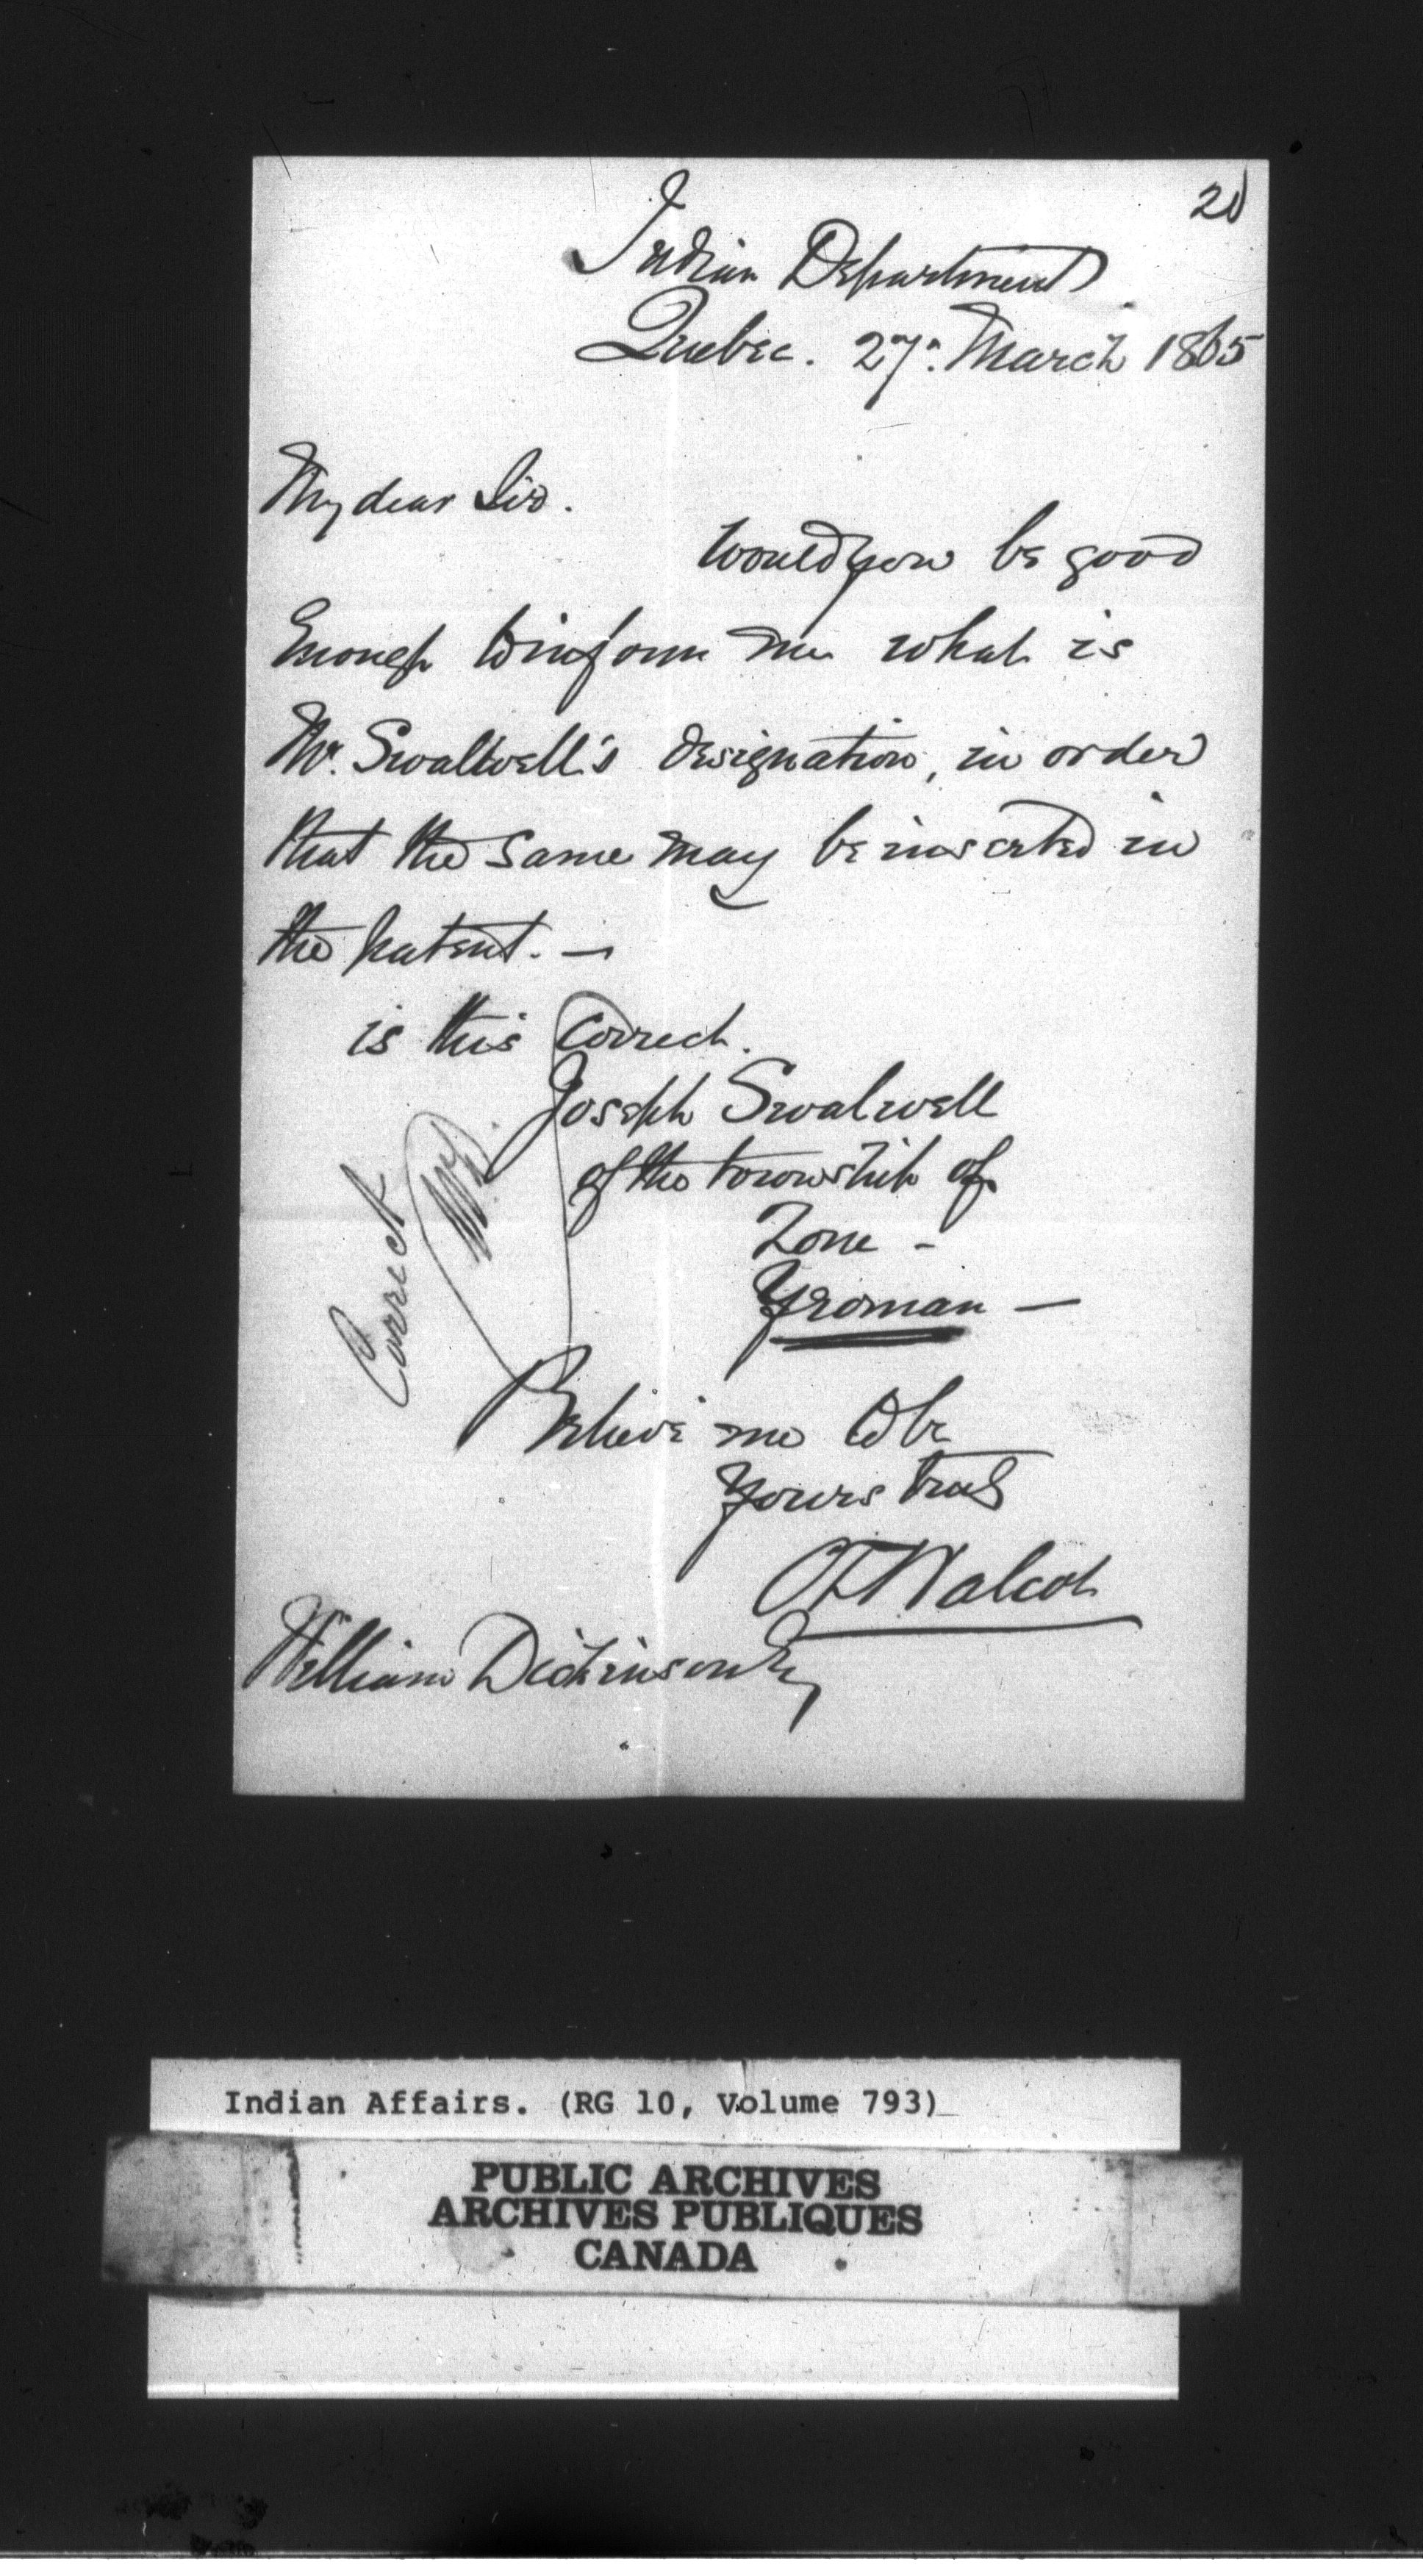 20
Indian Department
Quebec. 27: March 1865
My dear Sir.
Would you be good
Enough to inform me what is
Mr. Swallwell's designation, in order
that the same may be inserted in
the patent. —
is this correct.
Joseph Swalwell
of the township of
Zone -
Yeoman —
Correct
Believe me to be
Yours truly
Walcot
William Dickinson Esq
Indian Affairs. (RG 10, Volume 793)
PUBLIC ARCHIVES
ARCHIVES PUBLIQUES
CANADA